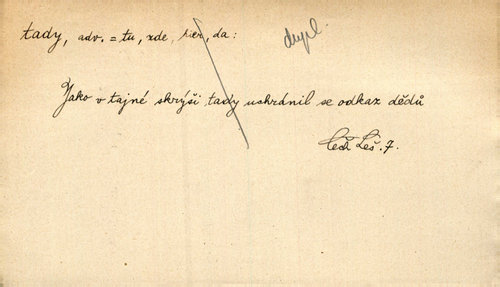 tady, adv. = tu, zde, hier, da:
dupl.
Jako v tajné skrýši tady uchránil se odkaz dědů
Čech Leš. 7.